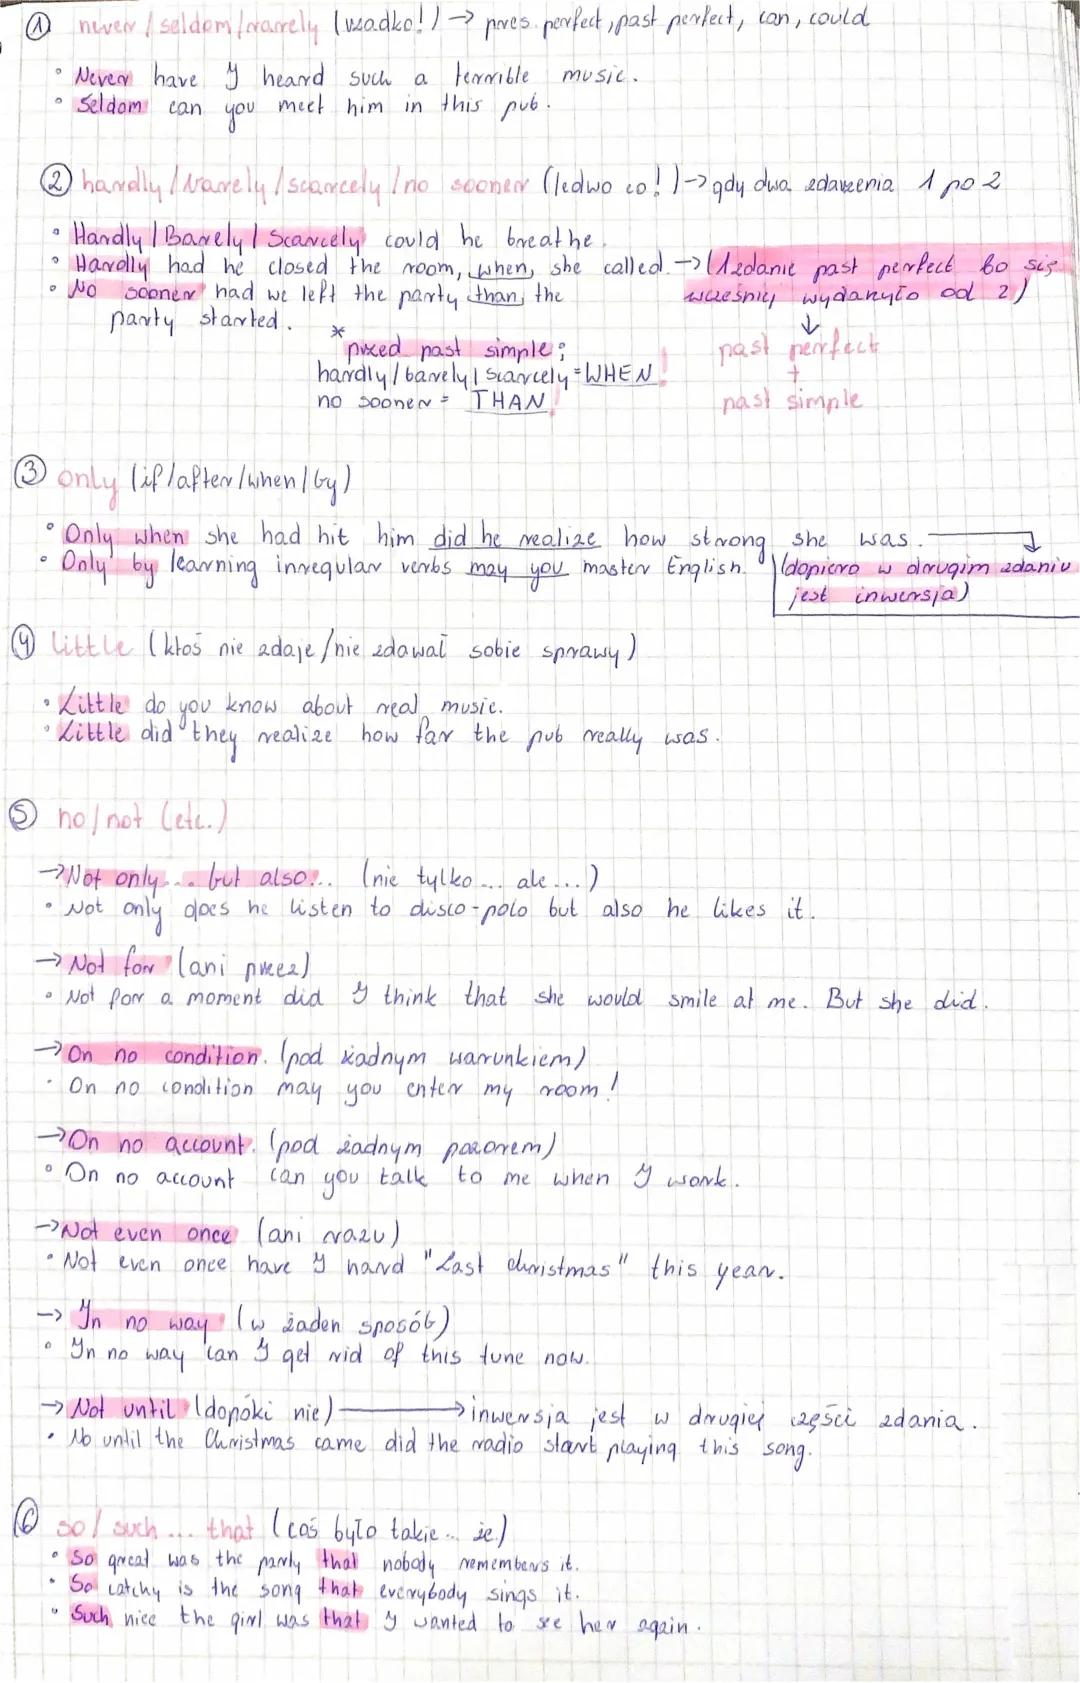 ① never / seldom / rarely (rzadko!) → pres. perfect, past perfect, can, could
• Never have I heard such a terrible music.
• Seldom can you meet him in this pub.
② hardly / barely / scarcely / no sooner (ledwo co!) → gdy dwa zdarzenia 1 po 2
• Hardly / Barely / Scarcely could he breathe.
• Hardly had he closed the room, when, she called. → (1 zdanie past perfect bo się
• No sooner had we left the party than, the wcześniej wydarzyło od 2)
party started.
↓
past perfect
+
past simple
*
przed past simple:
hardly / barely / scarcely = WHEN!
no sooner = THAN!
③ only (if / after / when / by)
• Only when she had hit him did he realize how strong she was.
• Only by learning inregular verbs may you master English. (dopiero w drugim zdaniu
jest inwersja)
④ little (ktoś nie zdaje / nie zdawał sobie sprawy)
• Little do you know about real music.
• Little did they realize how far the pub really was.
⑤ no / not (etc.)
→ Not only... but also... (nie tylko... ale...)
• Not only does he listen to disco-polo but also he likes it.
→ Not for (ani przez)
• Not for a moment did I think that she would smile at me. But she did.
→ On no condition. (pod żadnym warunkiem)
• On no condition may you enter my room!
→ On no account. (pod żadnym pozorem)
• On no account can you talk to me when I work.
→ Not even once (ani razu)
• Not even once have I hard "Last christmas" this year.
→ In no way (w żaden sposób)
• In no way can I get rid of this tune now.
→ Not until (dopóki nie) → inwersja jest w drugiej części zdania.
• No until the Christmas came did the radio start playing this song.
⑥ so / such ... that (coś było takie... że)
• So great was the party that nobody remembers it.
• So catchy is the song that everybody sings it.
• Such nice the girl was that I wanted to see her again.